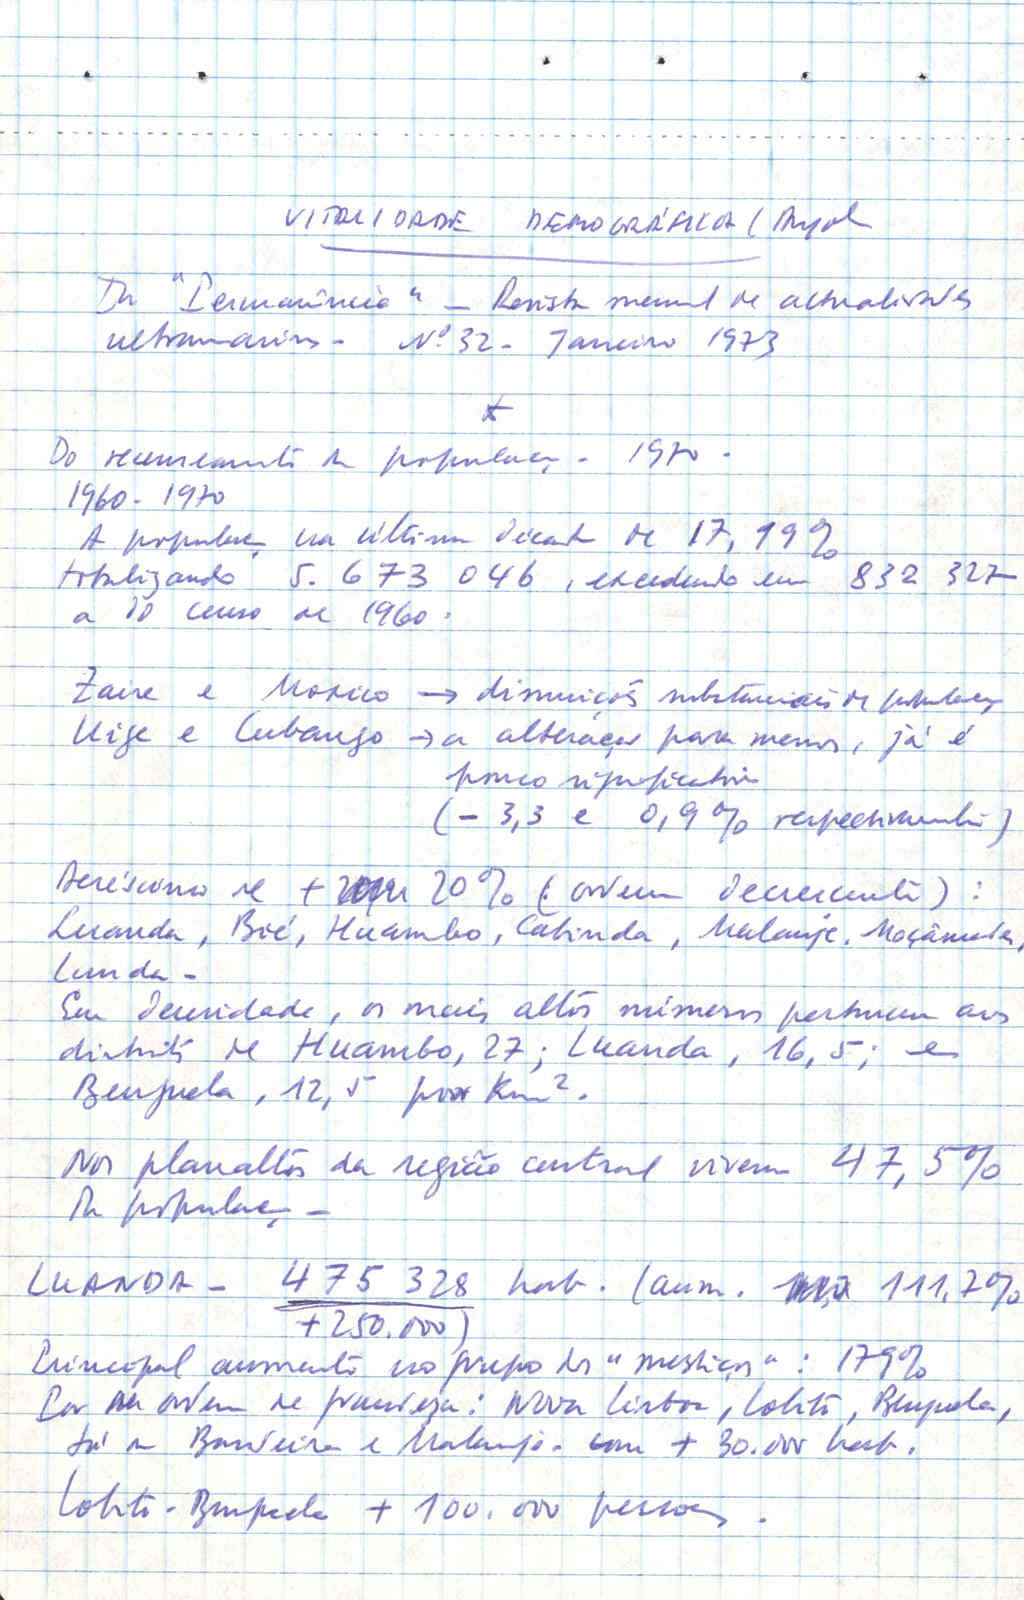 VITALIDADE DEMOGRÁFICA (Angola
Da "Permanência" - Revista mensal de actualidades
ultramarinas - Nº 32 - Janeiro 1973
*
Do recenseamento da populaç. - 1970 -
1960 - 1970
A populaç. na última década de 17,19%
totalizando 5. 673 046, excedendo em 832 327
a do censo de 1960.
Zaire e Moxico → diminuições substanciais de populaç.
Uíge e Cubango → a alteraçã para menos, já é
pouco significativa
(- 3,3 e 0,9% respectivamente)
Acréscimo de + 20% (ordem decrescente) :
Luanda, Bié, Huambo, Cabinda, Malanje, Moçâmedes,
Lunda -
Em densidade, os mais altos números pertencem aos
distritos de Huambo, 27; Luanda, 16,5; e
Benguela, 12,5 por Km².
Nos planaltos da região central vivem 47,5%
da populaç. -
LUANDA - 475 328 hab. (aum. 111,7%
+ 250.000)
Principal aumento no grupo dos "mestiços" : 179%
Por ordem de grandeza : Nova Lisboa, Lobito, Benguela,
Sá da Bandeira e Malanje - com + 30.000 hab.
Lobito - Benguela + 100.000 pessoas.